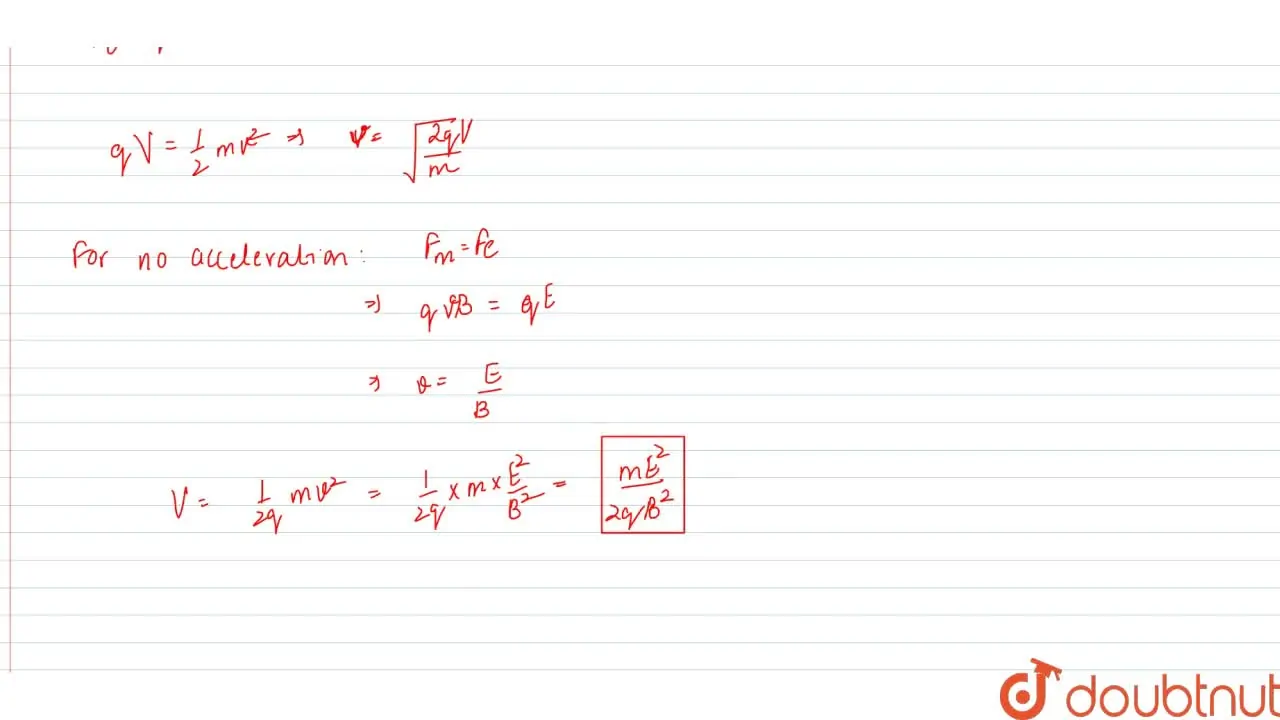 qV = 1/2 mv² ⇒ v = √(2qV/m)
For no acceleration: Fm = Fe
⇒ qvB = qE
⇒ v = E/B
V = 1/2q mv² = 1/2q × m × E²/B² = mE²/2qB²
doubtnut